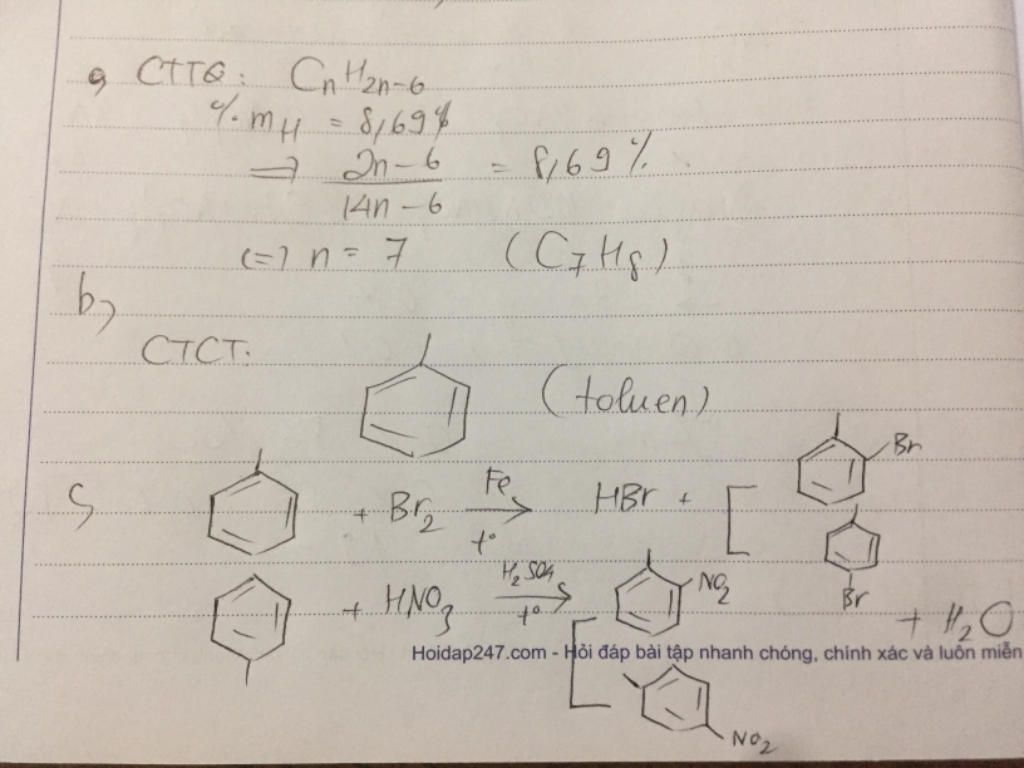 a, CTTQ: CnH2n-6
% mH = 8,69%
=> 2n-6 / 14n-6 = 8,69%
<=> n = 7 (C7H8)
b,
CTCT: (toluen)
c, + Br2 Fe, t° → HBr + [
Br
Br
+ HNO3 H2SO4 t° → [
NO2
NO2
+ H2O
Hoidap247.com - Hỏi đáp bài tập nhanh chóng, chính xác và luôn miễn